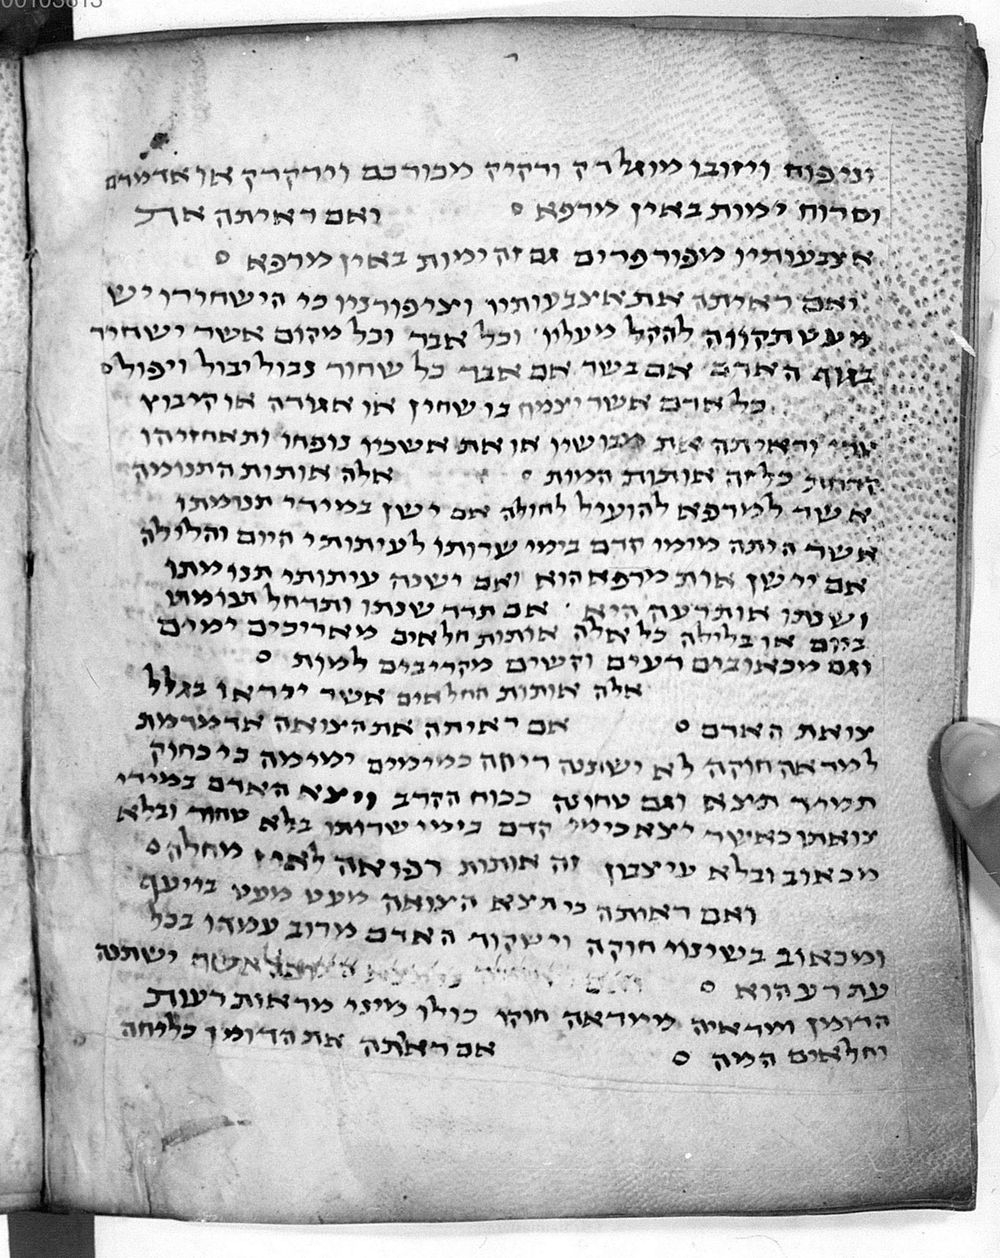 00103613
ונפוח ויזובו מוגל רק ורקיק מבורכם וירקרק או אדמדם
וסרוח ימות באין מרפא ○ ואם ראיתה את
אצבעותיו מפורפרים גם זה ימות באין מרפא ○
ואם ראיתה את אצבעותיו וציפורניו כי השחירו יש
מעט תקווה להקל מעליו וכל אבר וכל מקום אשר ישחיר
בגוף האדם אם בשר אם אבר כל שחור נבול יבול ויפול ○
כל אדם אשר יצמח בו שחין או אגודה או קיבוץ
וראיתה את מבושיו או את אשכיו נופחו ותאחזיהו
כל זה אותות המות ○ אלה אותות התנומה
אשר למרפא להועיל לחולה אם ישן במידי תנומתו
אשר היתה מימי קדם בימי שרותו לעיתותי היום והלילה
אם יישן אות מרפא הוא ואם ישנה עיתותי תנומתו
ושנתו אות רעה היא אם תדד שנתו ותחדל תנומתו
ביום או בלילה כל אלה אותות חלאים מאריכים ימים
וגם מכאובים רעים וקשים מקריבים למות ○
אלה אותות החלאים אשר יראו בגלל
צואת האדם ○ אם ראיתה את הצואה אדמדמת
למראה חוקה לא ישתנה ריחה כמימים ימימה כי כחוק
תמיד תצא וגם טחונה ככוח הקרב ויצא האדם במידי
צואתו כאשר יצא כימי קדם בימי שרותו בלא טחור ובלא
מכאוב ובלא עיצבון זה אותות רפואה לאיש מחלה ○
ואם ראיתה כי תצא הצואה מעט מעט ביועף
ומכאוב בשינוי חוקה וישקוד האדם מרוב עמדו בכל
עת רע הוא ○ אשר ישתנה
הדומן ומראיה ממראה חוקו כולו מיני מראות רעות
וחלאים המה ○ אם ראיתה את הדומן כליחה